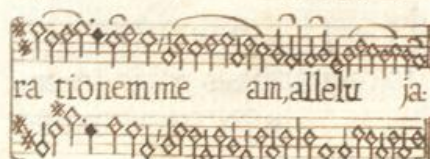 ra tionem me am, allelu ja.